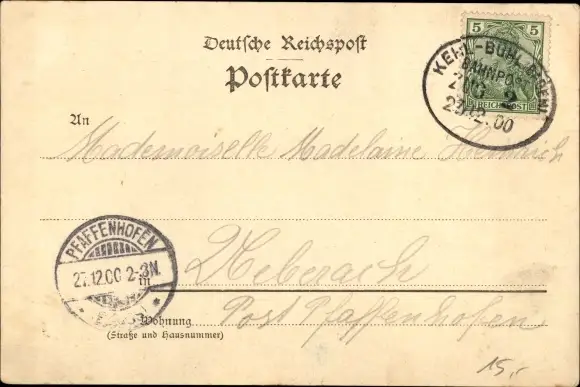 Deutsche Reichspost
Postkarte
5 5
REICHSPOST
KEHL-BÜHL (BADEN)
BAHNPOST
ZUG 2
27.12.00
An
Mademoiselle Madelaine Heinrich
PFAFFENHOFEN
27.12.00 2-3N.
in Ueberach
Post Pfaffenhofen
Wohnung
(Straße und Hausnummer)
15,-